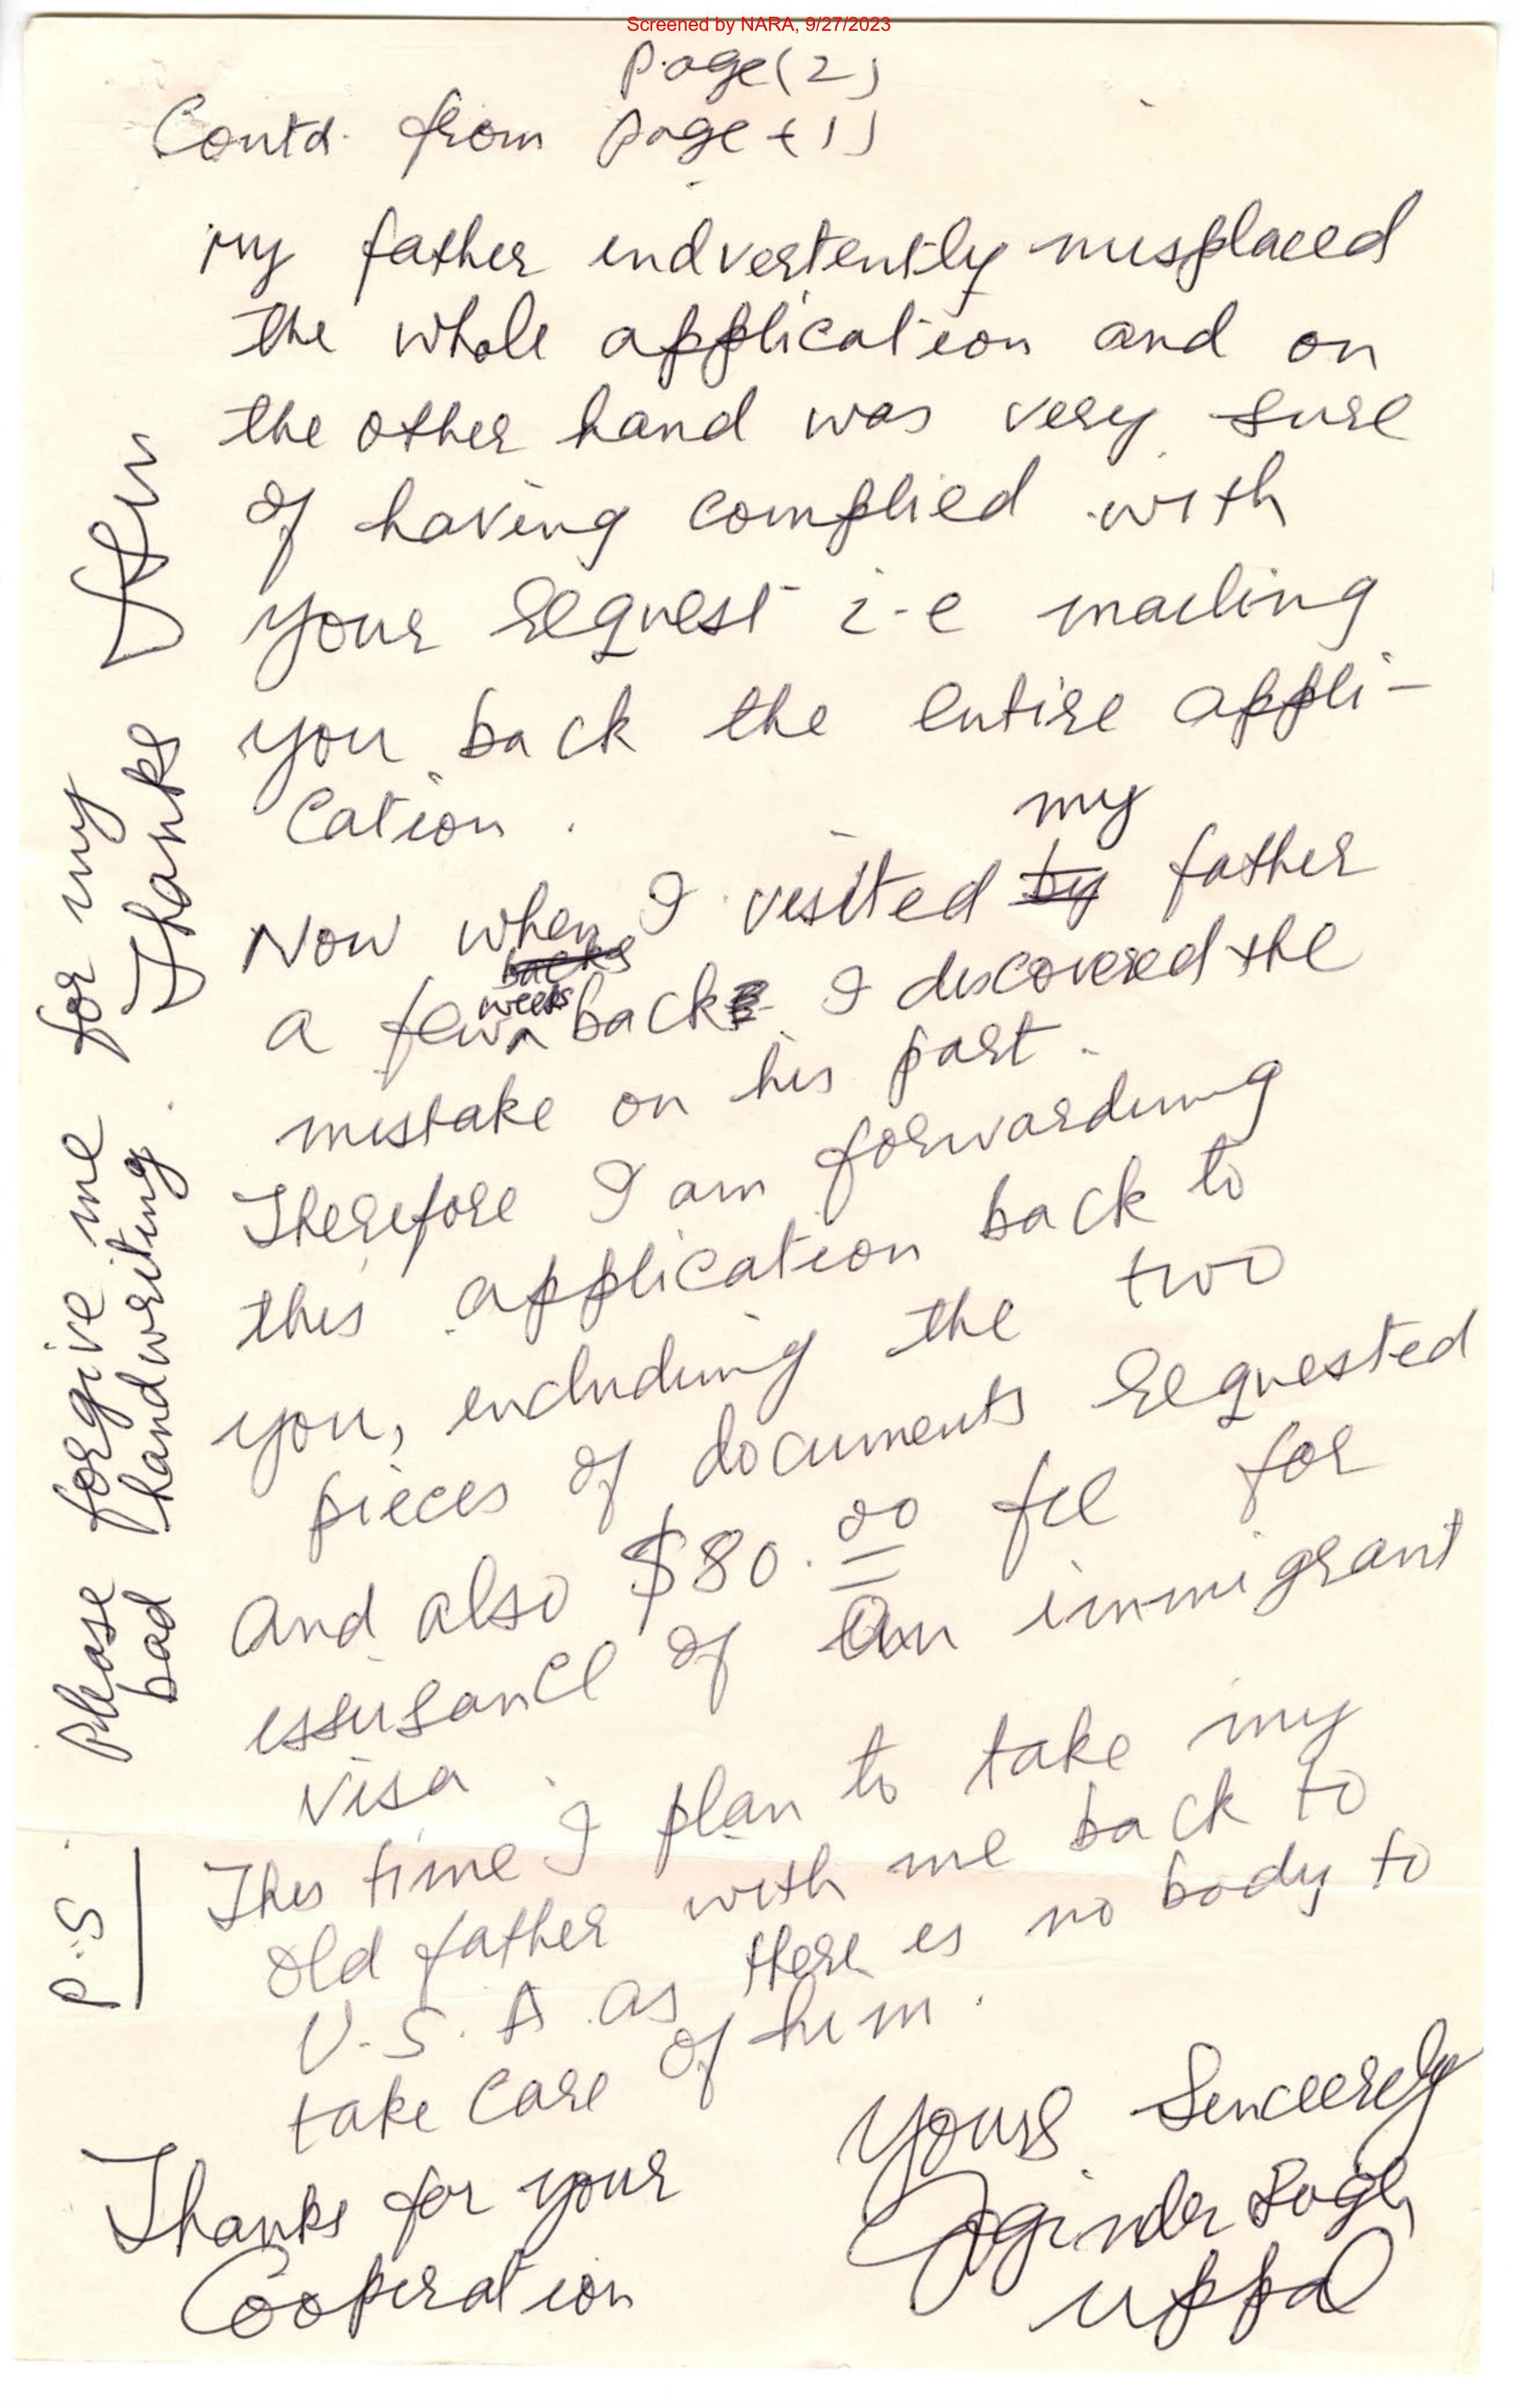 Screened by NARA, 9/27/2023
Page (2)
Contd. from page (1)
my father indvertently misplaced
the whole application and on
the other hand was very sure
of having complied with
your request i-e mailing
you back the entire appli-
cation.
Now when I visited by my father
a few backs weeks back I discovered the
mistake on his part.
Therefore I am forwarding
this application back to
you, including the two
pieces of documents requested
and also $80.00 fee for
issusance of an immigrant
visa.
This time I plan to take my
old father with me back to
U.S.A as there is no body to
take care of him.
Thanks for your
Cooperation
Yours Sincerely
Joginder Singh
Uppal
P.S. Please forgive me for my
bad handwriting. Thanks